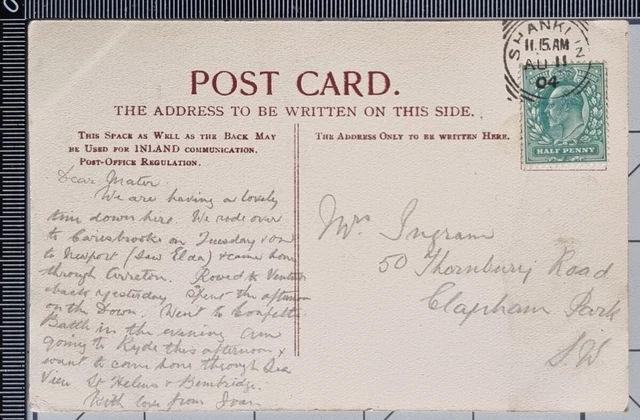 SHANKLIN
11.15 AM
AU 11
04
HALF PENNY
POST CARD.
THE ADDRESS TO BE WRITTEN ON THIS SIDE.
THIS SPACE AS WELL AS THE BACK MAY
BE USED FOR INLAND COMMUNICATION.
POST-OFFICE REGULATION.
THE ADDRESS ONLY TO BE WRITTEN HERE.
Dear Mater.
We are having a lovely
time down here. We rode over
to Carisbrooke on Tuesday & on
to Newport (saw Elda) & came home
through Arreton. Rowed to Ventnor
& back yesterday. Spent the afternoon
on the Down. Went to Confetti
Battle in the evening. Am
going to Ryde this afternoon &
want to come home through Sea
View St Helens & Bembridge.
With love from
Mrs Ingram
50 Thornbury Road
Clapham Park
S.W